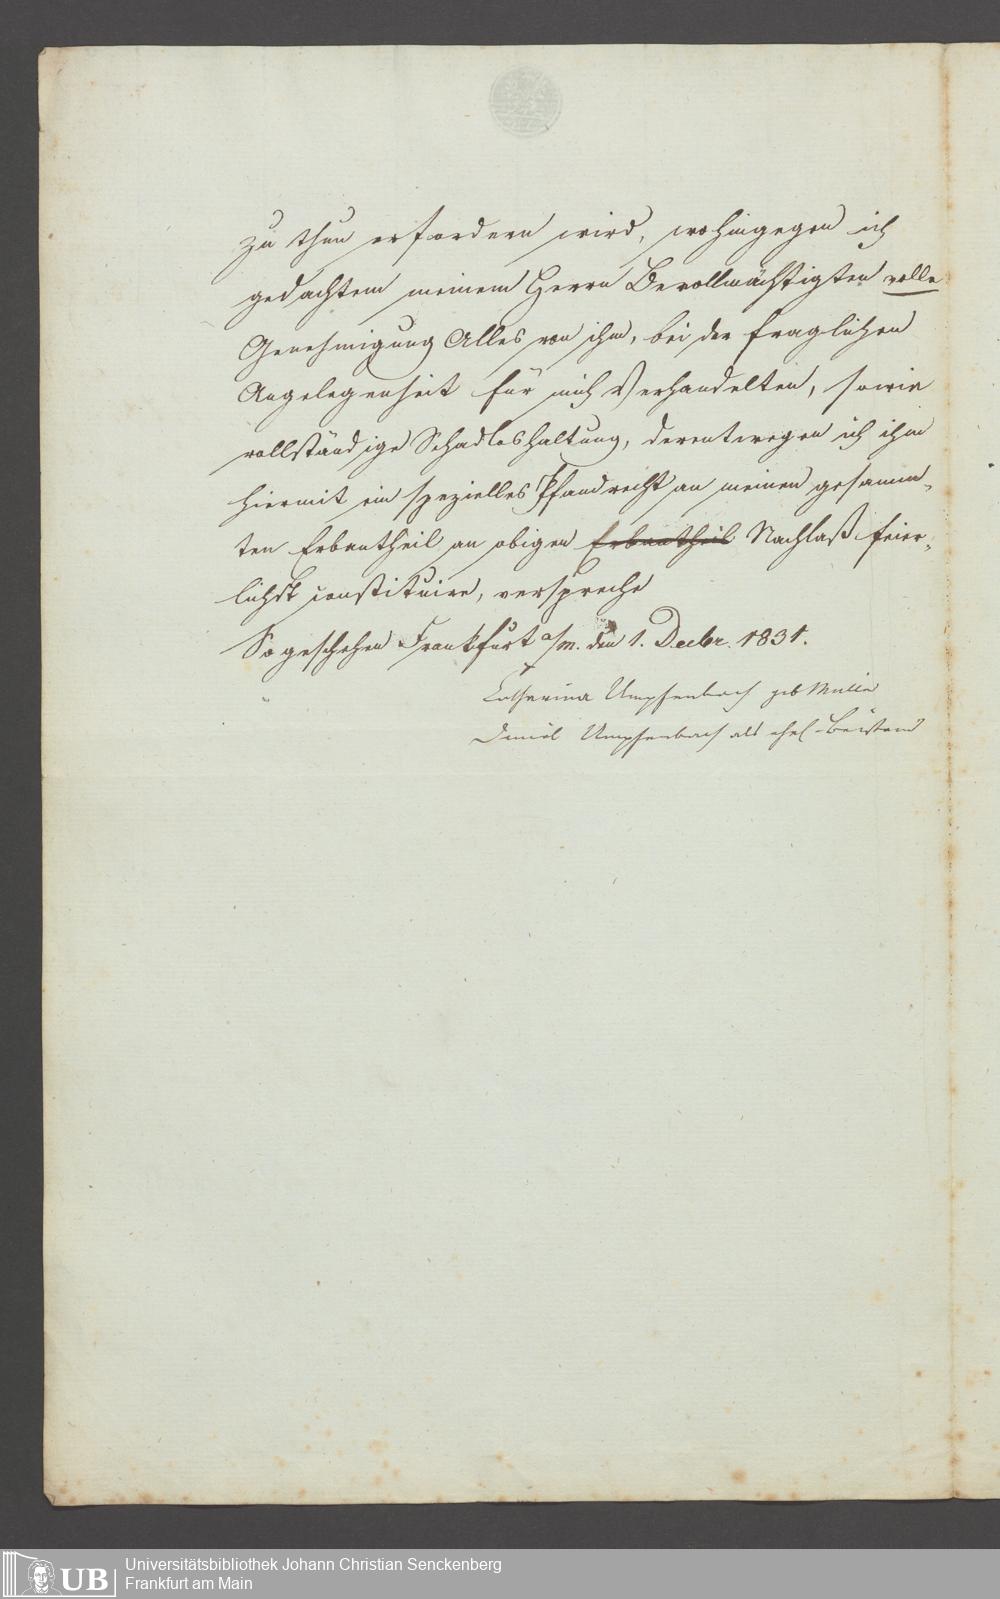 zu thun erfordern wird, wohingegen ich
gedachtem meinem Herrn Bevollmächtigten volle
Genehmigung Alles von ihm, bei der fraglichen
Angelegenheit für mich Verhandelten, sowie
vollständige Schadloshaltung, derentwegen ich ihm
hiermit ein spezielles Pfandrecht an meinen gesamm„
ten Erbantheil an obigen Erbantheil Nachlaß feier„
lichst constituire, verspreche
So geschehen Frankfurt a/m. den 1. Decbr. 1831.
Catharina Umpfenbach geb
Daniel Umpfenbach als ehel Beistand
UB
Universitätsbibliothek Johann Christian Senckenberg
Frankfurt am Main